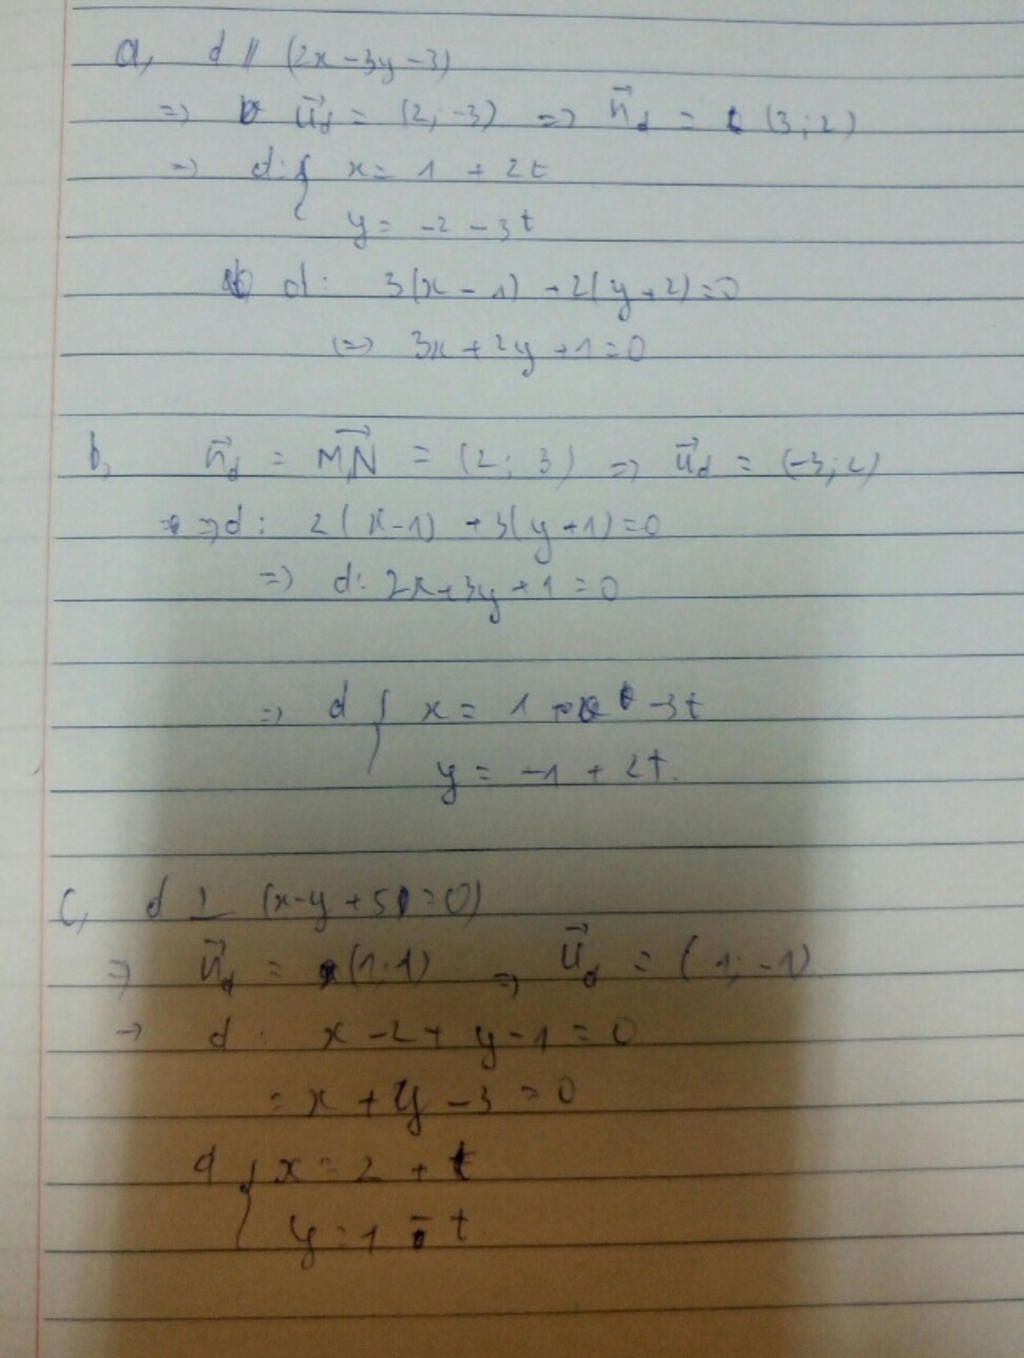 a, d // (2x - 3y - 3)
=> u⃗d = (2; -3) => n⃗d = (3; 2)
=> d: { x = 1 + 2t
y = -2 - 3t
d: 3(x - 1) + 2(y + 2) = 0
(=> 3x + 2y + 1 = 0
b, n⃗d = M⃗N = (2; 3) => u⃗d = (-3; 2)
=> d: 2(x - 1) + 3(y + 1) = 0
=> d: 2x + 3y + 1 = 0
=> d { x = 1 - 3t
y = -1 + 2t.
c, d ⊥ (x - y + 5 = 0)
=> n⃗d = (1; 1) => u⃗d = (1; -1)
-> d : x - 2 + y - 1 = 0
= x + y - 3 = 0
d { x = 2 + t
y = 1 - t